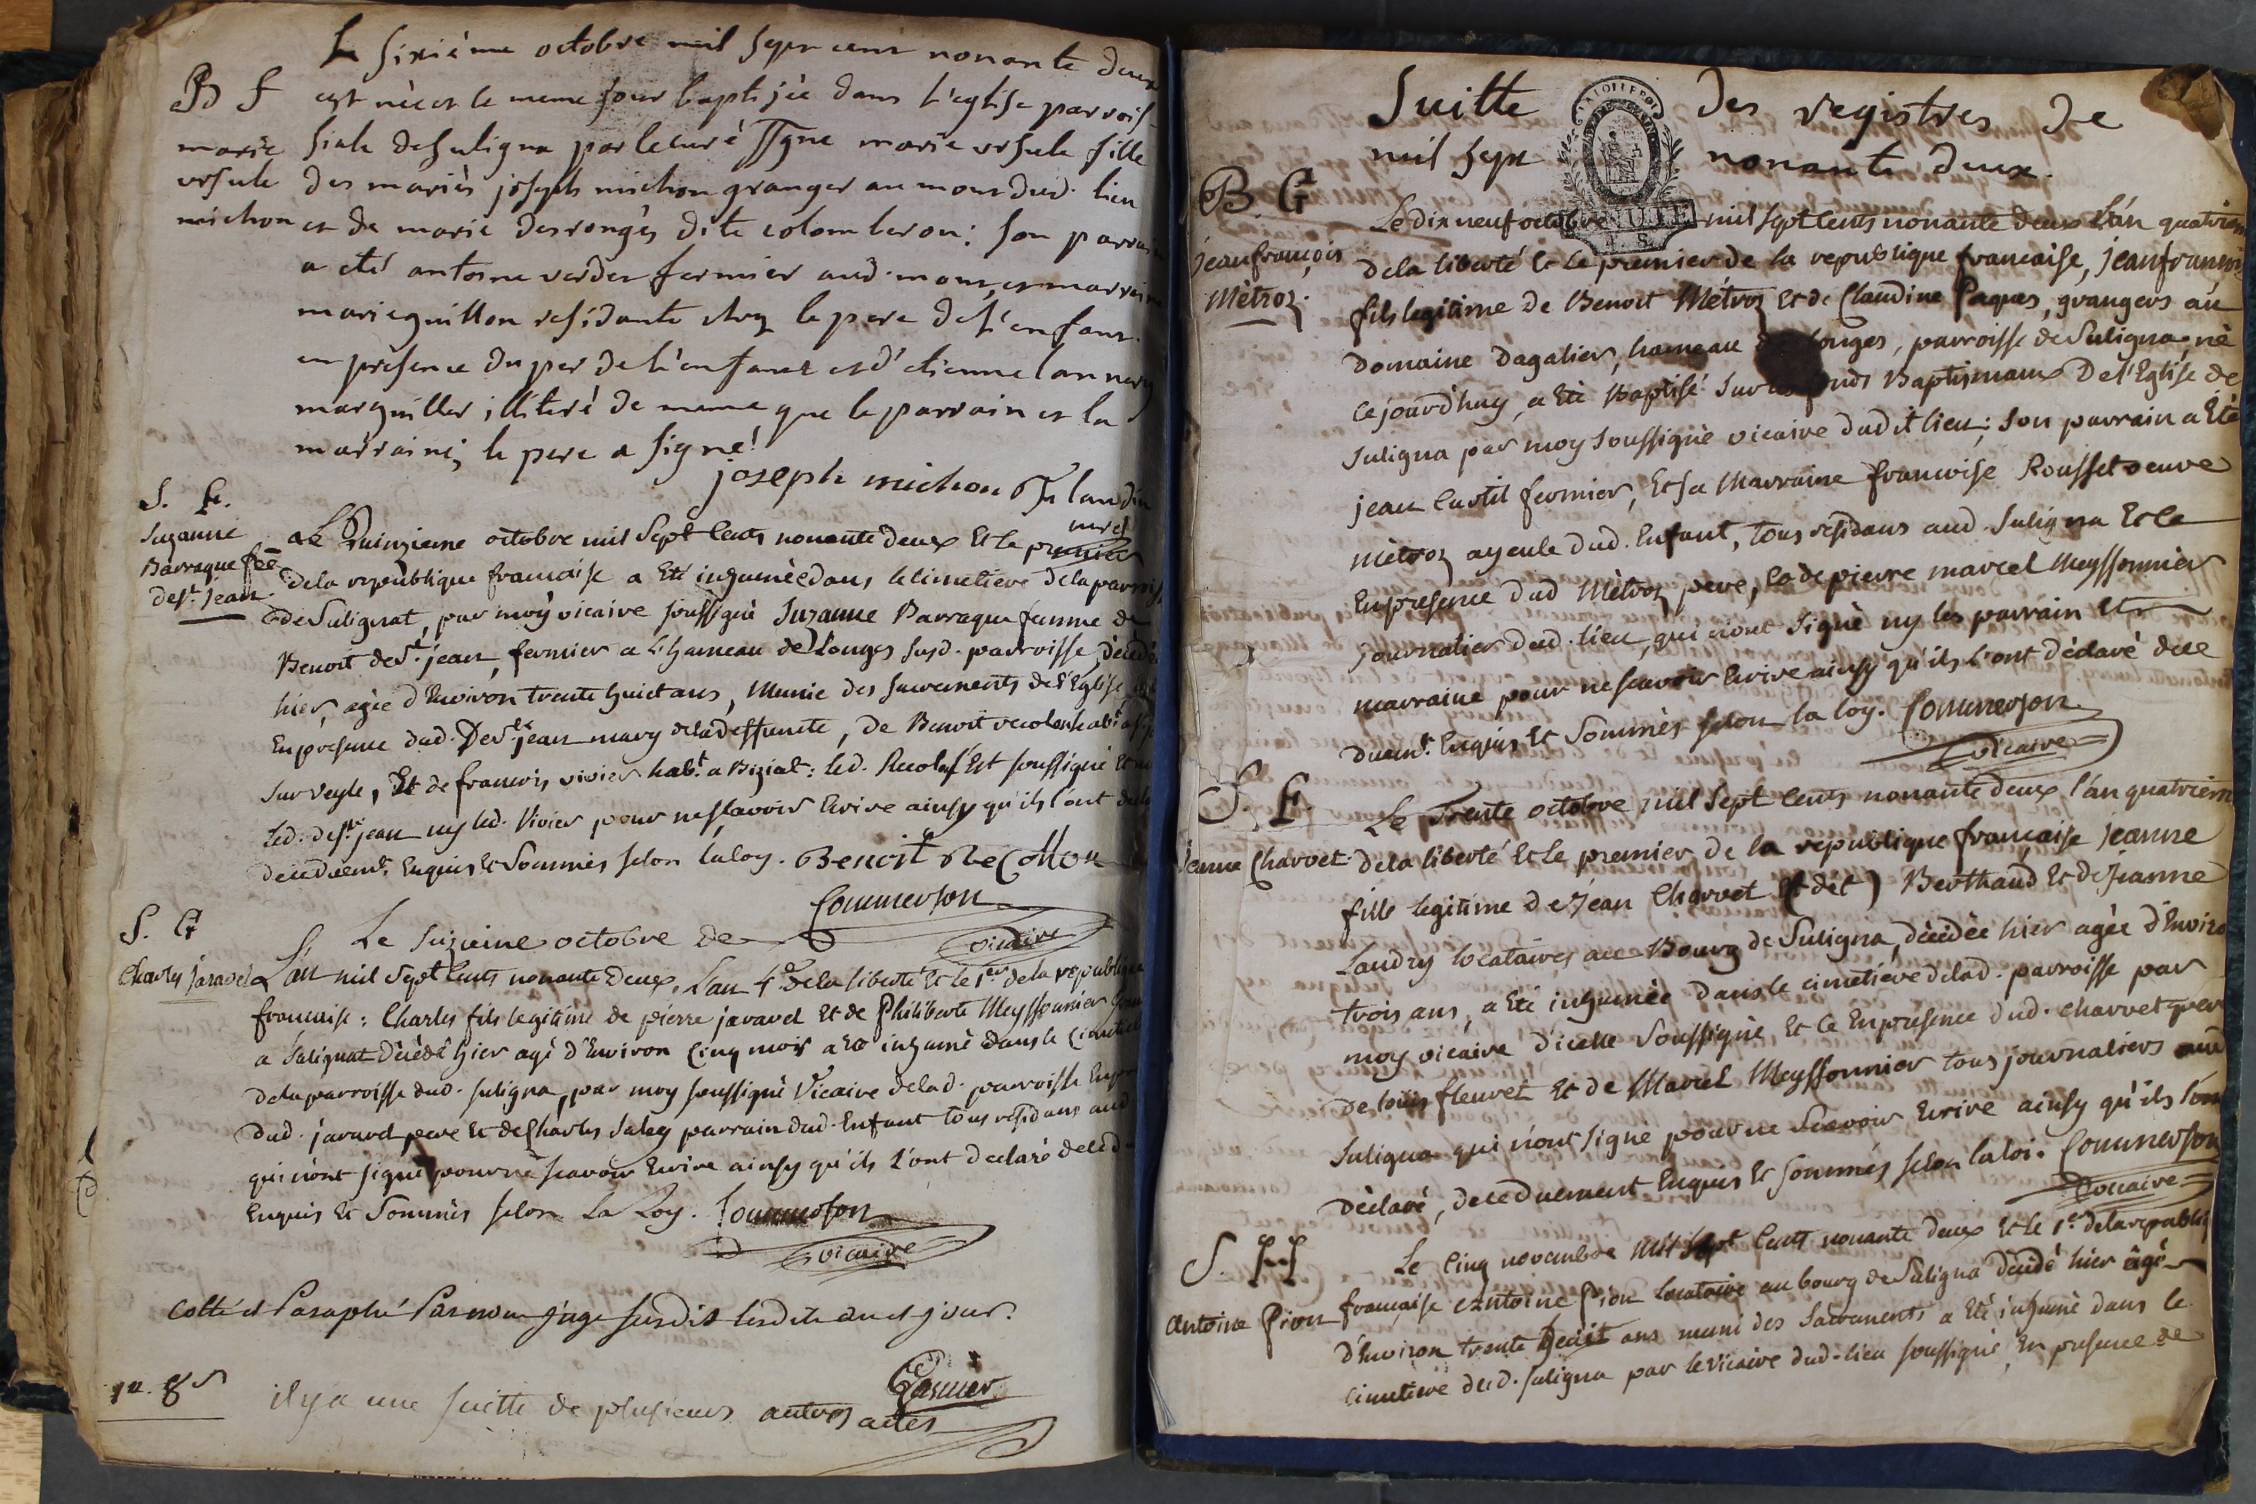 Le sixième octobre mil sept cent nonante deux
B F
est née et le meme jour baptisée dans l'eglise parrois-
marie
siale de suligna par le curé ssgné marie ursule fille
ursule
des mariés joseph michon granger au mour dud. lieu
michon
et de marie desrongés dite colomberon: son parrain
a eté antoine verder fermier aud. mour, et marraine
marie guillon residante chez le pere de l'enfant.
en presence du per de l'enfant et d'etienne lannery
marguiller illiteré de meme que le parrain et la
marraine; le pere a signé!
joseph michon
S. F.
Suzanne
Barraque fée
de st. jean
Le Quinzieme octobre mil Sept Cents nonante deux Et le premier
de la republique francaise a Eté inhumée dans le cimetiere de la parroisse
de Sulignat, par moy vicaire soussigné Suzanne Barraque femme de
Benoit de st. jean, fermier a L'hameau de Longes susd. parroisse, décédée
hier, agée d'Environ trente huict ans, Munie des sacrements de l'Eglise,
En presence dud. De st. jean mary de la deffunte, de Benoit
sur veyle, Et de francois vivier habt. a Biziat: led. Recolon Est soussigné Et
led. de st. jean ny led. Vivier pour ne sçavoir Ecrire ainsy qu'ils l'ont
de ce duemt. Enquis Et Sommés selon la loy. Benoit Recollon
Commerson
vicaire
S. G
Le seizieme octobre de
Charles Javard
L'an mil Sept Cents nonante Deux, L'an 4e. de la liberté Et le 1er de la republique
francaise: Charles fils legitime de pierre javard Et de Philiberte Meyssonnier
a Sulignat Décédé hier agé d'Environ Cinq mois a Eté inhumé dans le
de la parroisse dud. suligna, par moy soussigné Vicaire de lad. parroisse
dud. javard pere Et de Charles Saley parrain dud. Enfant tous residans aud
qui n'ont signé pour ne sçavoir Ecrire ainsy qu'ils l'ont declaré de ce
Enquis Et Sommés selon La Loy. Commerson
vicaire
Cotté et Paraphé Par nous juge susdit lesdits an et jour.
Garnier
il y a une suitte de plusieurs autres actes
Suitte des registres de
mil sept nonante deux.
B. G
Le dix neuf octobre mil sept cents nonante deux L'an quatrieme
jean françois
de la liberté Et Le premier de la republique francaise, jean francois
Métroz.
fils legitime de Benoit Métroz Et de Claudine Paques, grangers au
Domaine Dagalier, hameau de Longes, parroisse de Suligna, né
ce jourd'huy, a Eté Baptisé Sur les fonds Baptismaux De l'Eglise de
Suligna par moy soussigné vicaire dudit lieu; Son parrain a Eté
jean Curtil fermier, Et sa Marraine francoise Rousset veuve
Métroz ayeule dud. Enfant, tous residans aud. Suligna Et ce
En presence dud Métroz pere, Et de pierre marcel Meyssonnier
journalier dud. lieu, qui n'ont signé ny les parrain Et
marraine pour ne sçavoir Ecrire ainsy qu'ils l'ont déclaré de ce
duemt. Enquis Et Sommés selon la loy. Commerson
vicaire
S. F.
Le Trente octobre mil sept Cents nonante deux, l'an quatriem
Jeanne Charvet
de la liberté Et Le premier de la republique française jeanne
fille legitime de jean Charvet (dit) Berthaud Et de jeanne
Landry locataires au Bourg de Suligna, décédée hier agée d'Environ
trois ans, a Eté inhumée dans le cimetiere de lad. parroisse par
moy vicaire d'icelle soussigné, Et ce En presence dud. charvet pere
De louis fleuret Et de Marcel Meyssonnier tous journaliers aud
Suligna qui n'ont signé pour ne Scavoir Ecrire ainsy qu'ils l'ont
Declaré, de ce duement Enquis Et Sommés selon la loi. Commerson
vicaire
S. H
Le Cinq novembre mil sept Cents nonante deux Et le 1er de la republiq
antoine Pion
française antoine Pion locataire au bourg de Suligna décédé hier agé
d'Environ trente huit ans muni des Sacrements a Eté inhumé dans le
cimetiere dud. suligna par le vicaire dud. lieu soussigné, En presence de